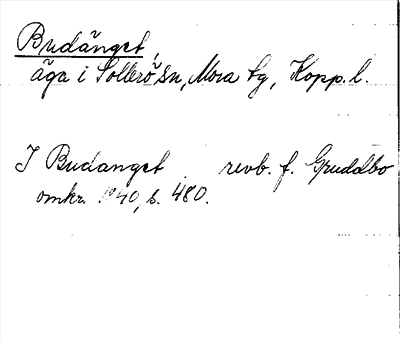 Budänget,
äga i Sollerö sn, Mora tg, Kopp. l.
I Budanget revb. f. Gruddbo
omkr. 1940, s. 480.